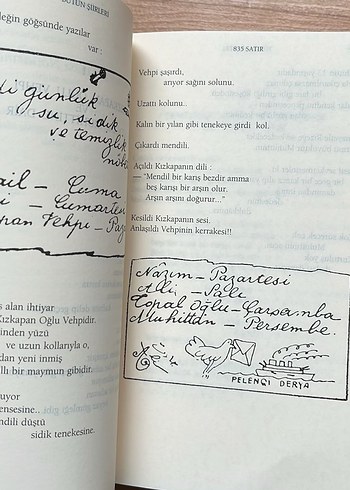 BÜTÜN ŞİİRLERİ
göğsünde yazılar
var :
günlük
su, sidik
ve temizlik
Cuma
Cumartesi
Vehpi -
alan ihtiyar
Kızkapan Oğlu Vehpidir.
yüzü
ve uzun kollarıyla o,
yeni inmiş
bir maymun gibidir.
ensesine..
mendili düştü
sidik tenekesine.
835 SATIR
Vehpi şaşırdı,
arıyor sağını solunu.
Uzattı kolunu.
Kalın bir yılan gibi tenekeye girdi kol.
Çıkardı mendili.
Açıldı Kızkapanın dili :
— "Mendil bir karış bezdir amma
beş karışı bir arşın olur.
Arşın arşını doğurur..."
Kesildi Kızkapanın sesi.
Anlaşıldı Vehpinin kerrakesi!!
Nâzım – Pazartesi
Ali – Salı
Topal Oğlu – Çarşamba
Muhittin – Perşembe
PELENGİ DERYA